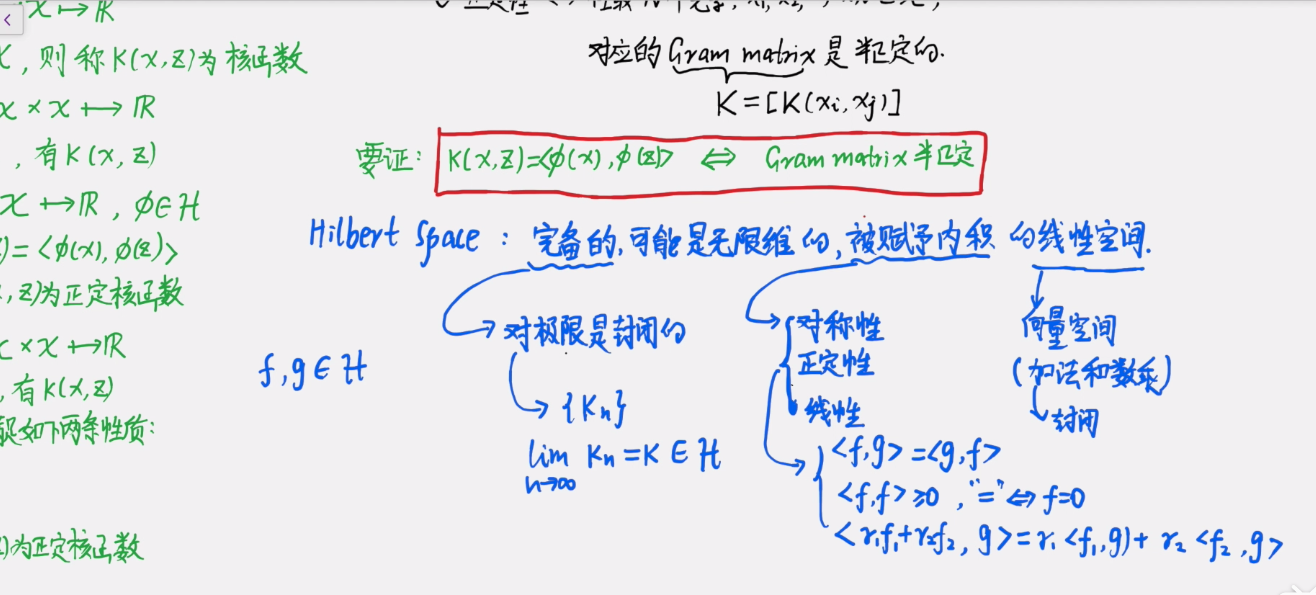 x ↦ ℝ
则称K(x,z)为核函数
x × x ↦ ℝ
,有K(x,z)
x ↦ ℝ, φ∈H
)=<φ(x),φ(z)>
,z)为正定核函数
x × x ↦ ℝ
,有K(x,z)
如下两条性质:
)为正定核函数
对应的Gram matrix是半正定的.
K=[K(xi,xj)]
要证: K(x,z)=<φ(x),φ(z)> ⇔ Gram matrix半正定
Hilbert Space: 完备的,可能是无限维的,被赋予内积的线性空间.
对极限是封闭的
{Kn}
lim Kn=K∈H
n→∞
f,g∈H
对称性
正定性
线性
<f,g>=<g,f>
<f,f>≥0,"="⇔f=0
<r₁f₁+r₂f₂, g>=r₁<f₁,g)+r₂<f₂,g>
向量空间
(加法和数乘)
封闭